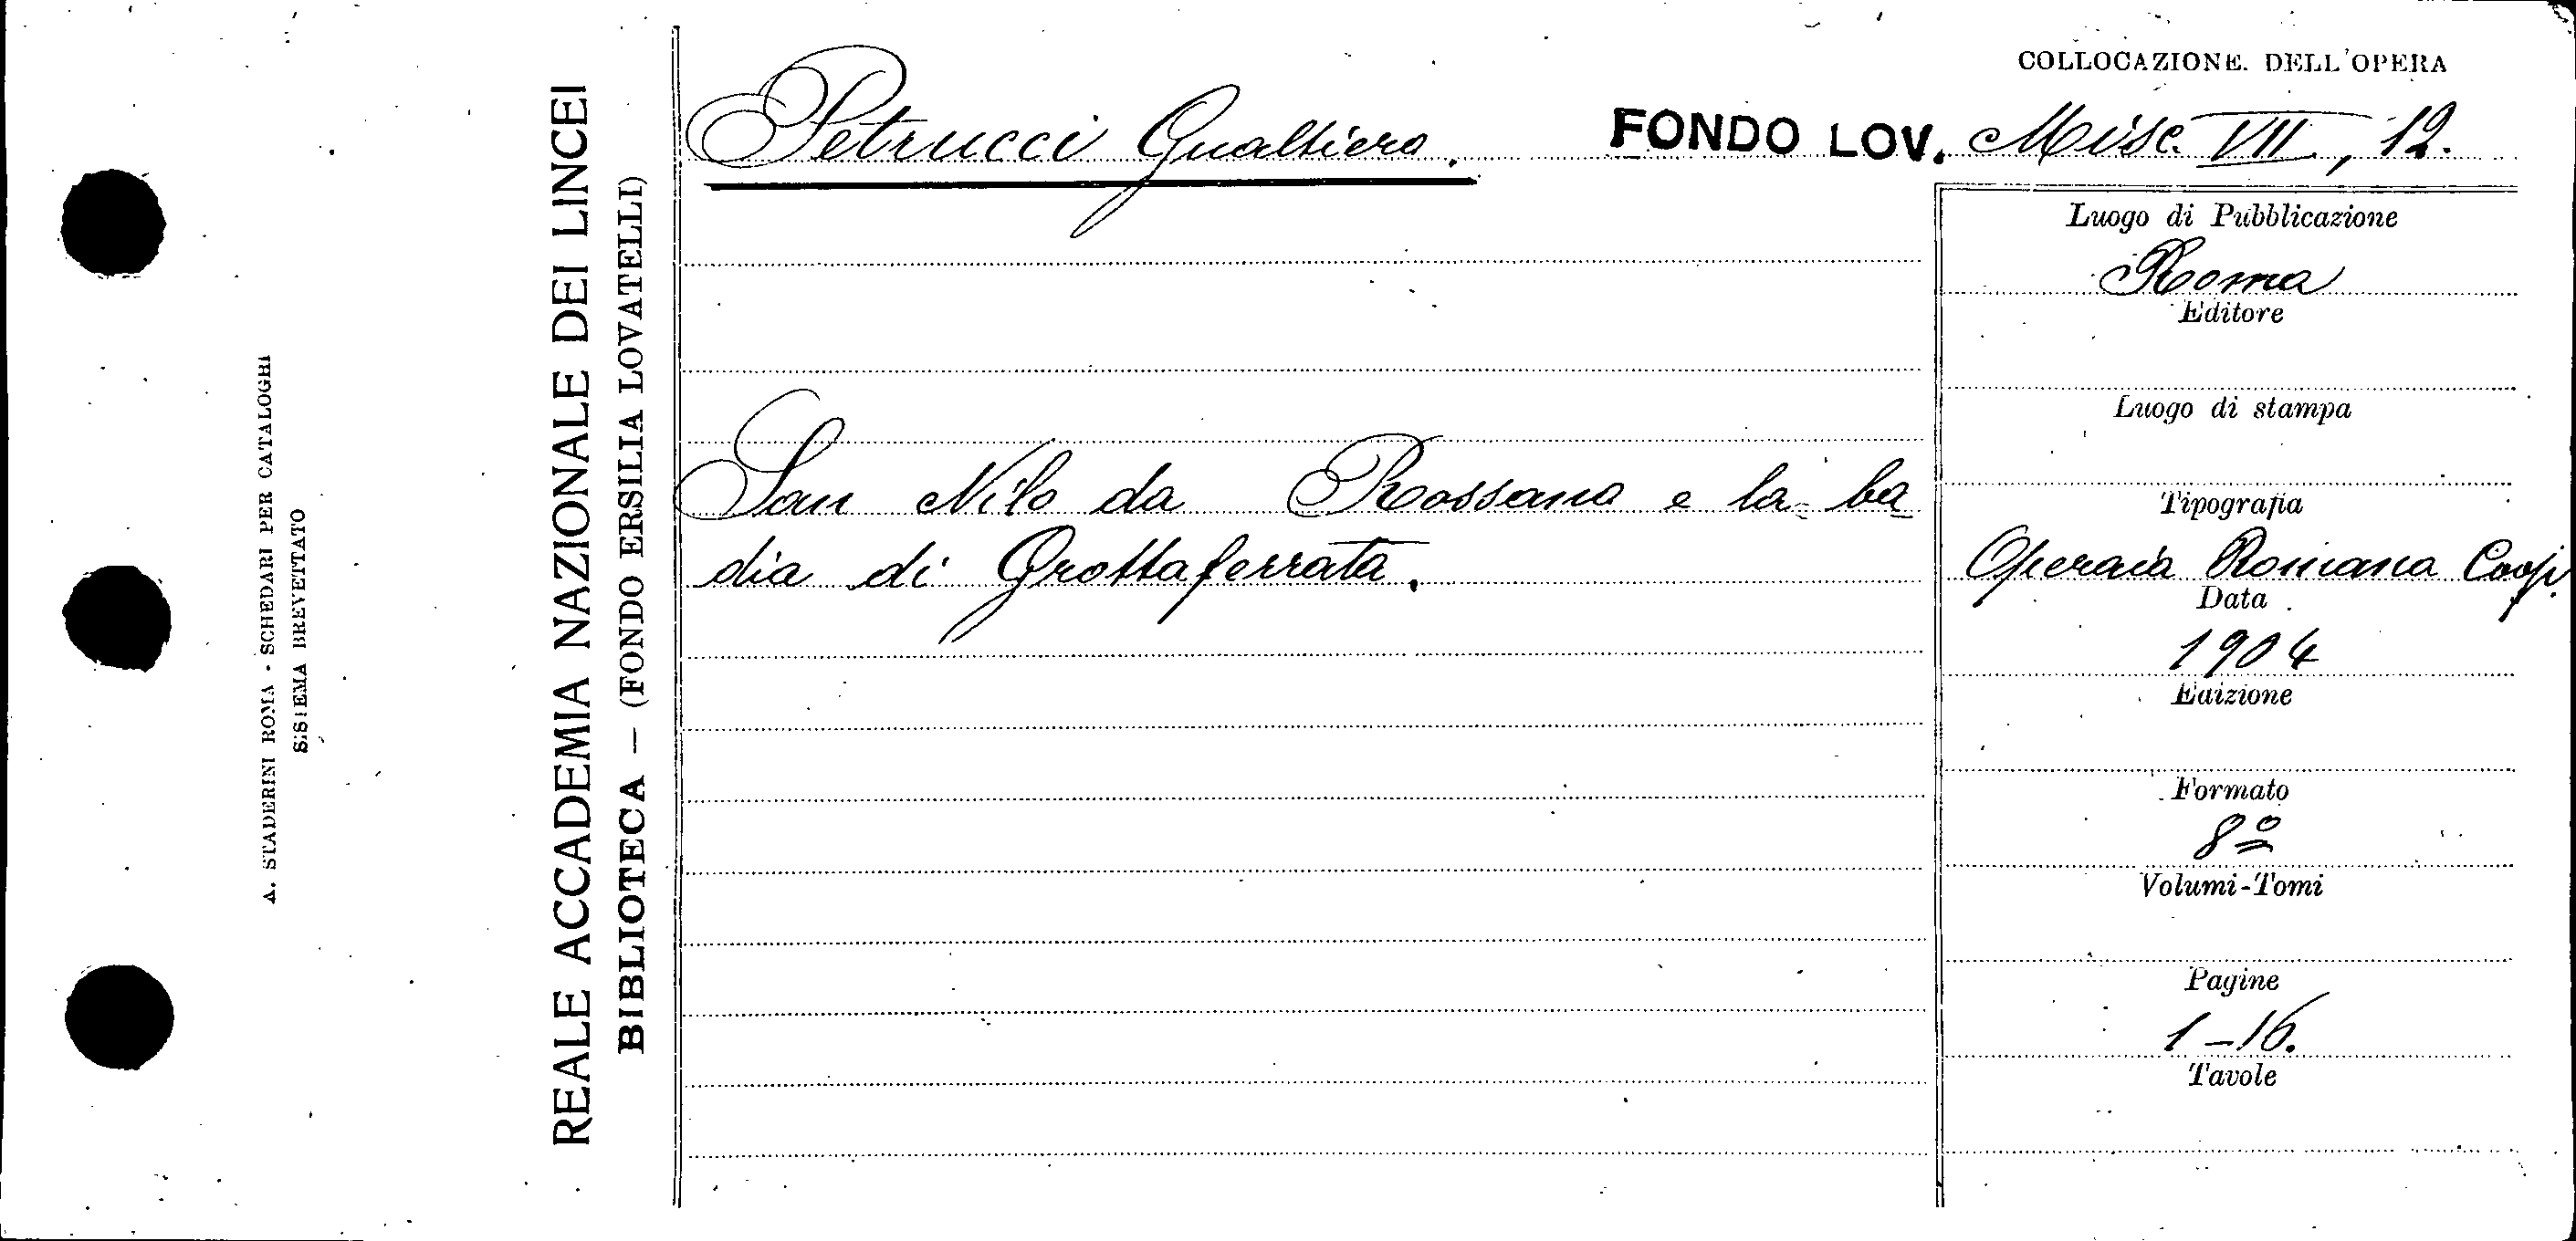 A. STADERINI ROMA - SCHEDARI PER CATALOGHI
SISTEMA BREVETTATO
REALE ACCADEMIA NAZIONALE DEI LINCEI
BIBLIOTECA — (FONDO ERSILIA LOVATELLI)
COLLOCAZIONE DELL'OPERA
Petrucci Gualtiero.
FONDO LOV. Misc. VII, 12.
San Nilo da Rossano e la ba-
dia di Grottaferrata.
Luogo di Pubblicazione
Roma
Editore
Luogo di stampa
Tipografia
Operaia Romana Coop.
Data
1904
Edizione
Formato
8º
Volumi-Tomi
Pagine
1-16.
Tavole